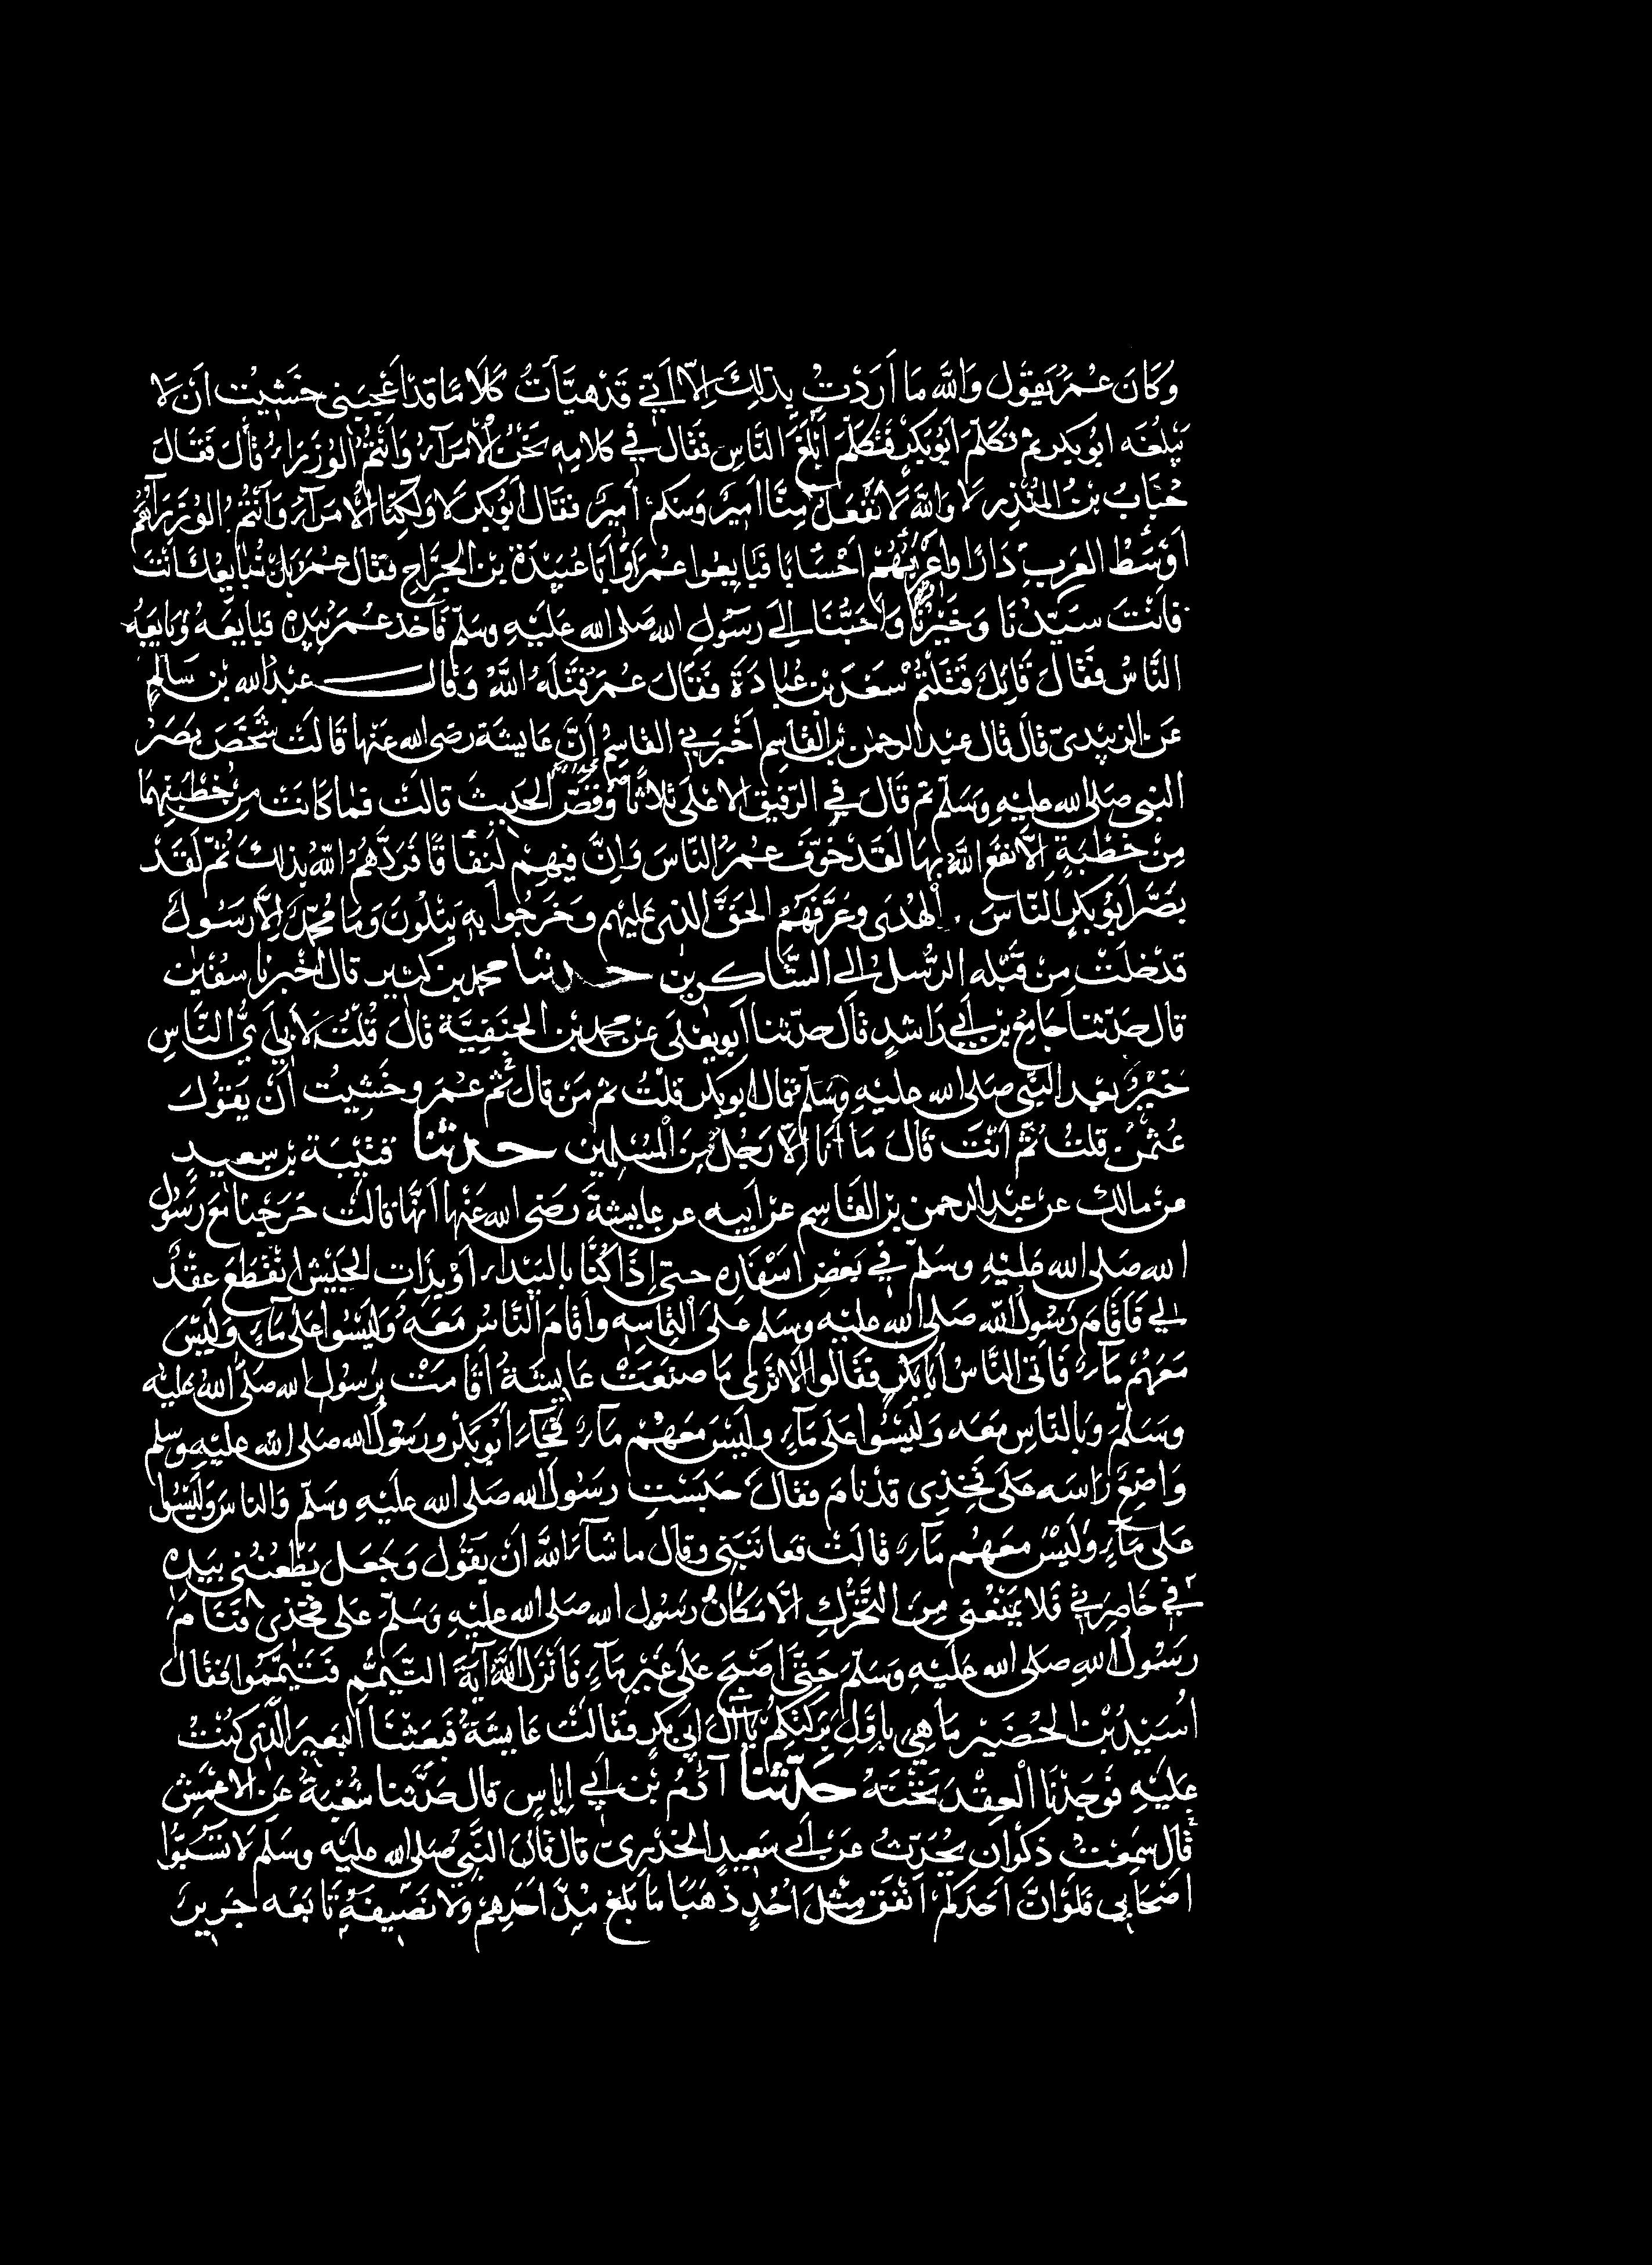 وَكَانَ عُمَرُ يَقُول وَاللَّه مَا أَرَدْتُ بِذَلِكَ إِلَّا أَنِّي قَدْ هَيَّأتُ كَلَامًا قَدْ أَعْجَبَنِي خَشِيتُ أَنْ لَا
يَبْلُغَه ابُو بَكر ثم تكلّمَ ابُو بَكرٍ فَتَكَلَّمَ أَبْلَغَ النَّاسِ فَقَال فِي كلامِهِ نَحْنُ الْأُمَرَآءُ وَانتُمُ الْوُزَرَاءُ قَالَ فَقَالَ
حُبَابُ بنُ المُنْذِر لَا وَاللَّهِ لَا نَفْعَلُ مِنَّا امِيرٌ وَمنكم أمِيرٌ فقَال أَبُو بَكر لَا وَلَكِنَّا الْأُمَرَآءُ وَأَنْتُمُ الوُزَرَآءُ هُم
اوْسَطُ العَرَبِ دَارًا واعْرَبُهُمْ احْسَابًا فَبَايعُوا عُمَرَ أوْ ابَا عُبَيْدَةَ بْنَ الجَرَّاحِ فقَال عُمَر بَلْ نُبَايِعُكَ انْتَ
فانْتَ سَيِّدُنَا وَخَيْرُنَا وَاحَبُّنَا إلَى رَسُولِ الله صَلى الله عَلَيْهِ وسَلّم فَأخَذ عُمَرُ بيَدِهِ فبَايَعَهُ وَبَايَعَهُ
النَّاسُ فقَالَ قَائِلٌ قَتَلْتُمْ سَعْدَ بنَ عُبَادَةَ فَقَالَ عُمَر قَتَلَهُ اللَّهُ وَقال عبْدُ الله بن سَالِمٍ
عَن الزبيديّ قال قال عبد الرحمن بن القَاسِم اخْبَرني القاسِمُ انَّ عَايشة رضى الله عَنْها قَالَتْ شَخَصَ بَصَرُ
النبى صَلى الله عليْهِ وَسَلّم ثم قَالَ في الرّفيق الاعْلى ثلاثًا وَقَصَّ الحَدِيثَ قالت فما كانت مِنْ خُطْبَتِهِمَا
مِنْ خُطْبَةٍ إلّا نفَعَ اللَّهُ بِهَا لَقَد خَوَّفَ عُمَرُ النَّاسَ وَإنَّ فِيهِمْ لَنِفَاقًا فَرَدَّهُمُ اللّهُ بذلك ثُمّ لَقَد
بَصَّرَ أَبُو بَكرٍ النَّاسَ الهُدَى وعَرَّفَهُمُ الحَقَّ الذى عليهم وخَرَجُوا بِهِ يَتْلُونَ وَمَا محمدٌ إلّا رَسُولٌ
قد خلَتْ مِنْ قَبْلِهِ الرُّسلُ إلى الشَّاكرِين حدثنا محمد بن كثير قال اخْبرنا سفين
قال حَدّثنا جَامِعُ بن أبي رَاشدٍ قال حدّثنا أبو يعْلى عن محمد بن الحنفِيَّة قال قُلْتُ لأبى أيُّ النَّاسِ
خَيْرٌ بعد النبي صَلى الله عليْهِ وسَلّم قال ابو بكر قلتُ ثم مَنْ قال ثُمّ عُمَر وخَشِيتُ أنْ يَقُولَ
عُثمٰنُ قلتُ ثُمّ انْتَ قال مَا أَنَا إلّا رَجُلٌ مِنَ الْمُسْلِمينَ حدثنا قتَيْبَة بن سعيد
عن مالك عن عبد الرحمن بن القاسِم عن ابيه عن عايشةَ رَضى الله عَنْها انّها قالت خَرَجْنَا مَعَ رَسُول
الله صَلى الله عَلَيْهِ وسَلّم في بَعْضِ اسْفَارِه حتى إذَا كُنَّا بالبَيْدَاءِ اوْ بِذَاتِ الجَيْشِ انْقَطَعَ عِقْدٌ
لي فَأقَامَ رَسُولُ اللّهِ صَلى الله عليه وسَلم عَلَى الْتِمَاسِهِ واقَامَ النَّاسُ مَعَهُ وَلَيْسُوا عَلى مَآءٍ وَلَيْسَ
مَعَهُمْ مَآءٌ فَاتى النَّاسُ أَبَا بَكْرٍ فقَالُوا أَلَا تَرَى مَا صنَعَتْ عَايِشَةُ أقَامَتْ بِرَسُولِ الله صَلى الله عليْه
وَسَلّمَ وبالنّاسِ معَه وَلَيْسُوا عَلَى مَآءٍ ولَيْسَ مَعَهُمْ مَآءٌ فَجَآءَ أبُو بَكْرٍ ورَسُولُ الله صَلى الله عليْه وسلم
وَاضِعٌ رَاسَه عَلَى فَخِذِى قدْ نَامَ فقالَ حَبَسْتِ رسُولَ الله صَلى الله عليْهِ وسَلّم وَالناسَ وَلَيْسُوا
عَلى مَآءٍ وَلَيْسَ معهُم مَآءٌ قالَتْ فعَاتبَنِي وقال ما شَآءَ اللَّهُ انْ يَقُول وَجَعَل يَطْعُنُنى بيَدِه
في خَاصِرَتِي فَلا يَمْنَعُنى مِنَ التَّحَرُّكِ الَّا مَكَانُ رَسُول الله صَلى الله عليْهِ وَسَلّم عَلى فخذى فَنَامَ
رَسُولُ اللهِ صَلى الله عَلَيْهِ وَسَلّمَ حَتّى اصْبَحَ عَلَى غَيْرِ مَآءٍ فَأنْزَلَ اللَّهُ آيَةَ التّيَمُّمِ فَتَيَمَّمُوا فقال
اُسَيْدُ بْنُ الحُضَيْر مَا هِيَ بِاوّلِ بَرَكَتِكُمْ يَا آلَ ابى بَكرٍ فقَالَتْ عَايِشَةُ فَبَعَثْنَا البَعِيرَ الّتِى كُنْتُ
عَلَيْهِ فَوَجَدْنَا الْعِقْدَ تَحْتَهُ حَدّثنا آدَمُ بْن أبى إيَاسٍ قال حَدَّثنا شُعْبَةُ عَنِ الاعْمَشِ
قال سَمِعْتُ ذَكْوَان يُحَدِّثُ عَنْ أبي سَعِيدٍ الخُدْرِيّ قال قال النَّبِيُّ صَلى الله عليْه وسَلم لا تَسُبُّوا
اصْحَابِي فلَوْ انَّ احَدَكُمْ انْفَقَ مِثْلَ اُحُدٍ ذَهَبًا مَا بَلَغَ مُدَّ احَدِهِمْ ولا نَصِيفَهُ تَابَعَه جَرِيرٌ